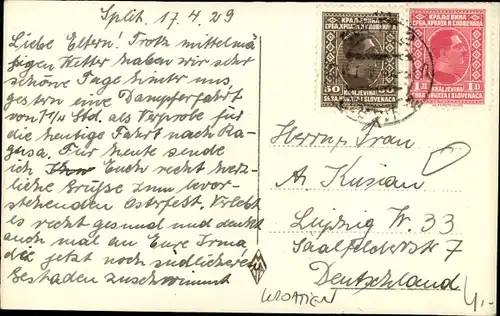 Split. 17.4.29
Liebe Eltern! Trotz mittelmä
ßigen Wetter haben wir sehr
schöne Tage hinter uns,
gestern eine Dampferfahrt
von 7½ Std. als Vorprobe für
die heutige Fahrt nach Ra-
gusa. Für heute sende
ich Euch recht herz-
liche Grüsse zum bevor-
stehenden Osterfest. Verlebt
es recht gesund und denket
auch mal an Eure Irma
die jetzt noch südlicheren
Gestaden zuschwimmt
КРАЉЕВИНА
СРБА, ХРВАТА И СЛОВЕНАЦА
50 50
KRALJEVINA
SRBA, HRVATA I SLOVENACA
КРАЉЕВИНА
СРБА, ХРВАТА И СЛОВЕНАЦА
1D 1D
KRALJEVINA
SRBA, HRVATA I SLOVENACA
Herrn u. Frau
A. Kusian
Leipzig W. 33
Saalfelderstr 7
Deutschland
KROATIEN
4,-